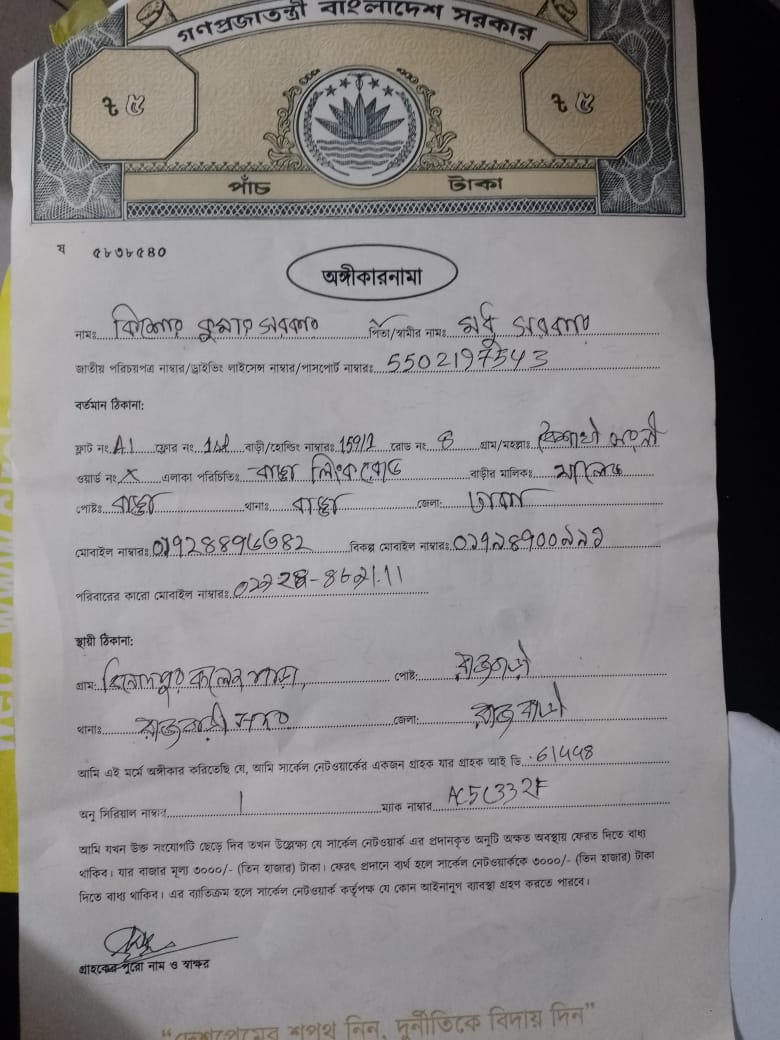 গণপ্রজাতন্ত্রী বাংলাদেশ সরকার
৳ ৫ ৳ ৫
পাঁচ টাকা
ষ ৫৮৩৮৫৪০
অঙ্গীকারনামা
নামঃ কিশোর কুমার সরকার পিতা/স্বামীর নামঃ মধু সরকার
জাতীয় পরিচয়পত্র নাম্বার/ড্রাইভিং লাইসেন্স নাম্বার/পাসপোর্ট নাম্বারঃ 5502197543
বর্তমান ঠিকানা:
ফ্লাট নং A1 ফ্লোর নং 1st বাড়ী/হোল্ডিং নাম্বারঃ 159/1 রোড নং 8 গ্রাম/মহল্লাঃ বৈশাখী স্মরনী
ওয়ার্ড নং X এলাকা পরিচিতিঃ বাড্ডা লিংক রোড বাড়ীর মালিকঃ
পোষ্টঃ বাড্ডা থানাঃ বাড্ডা জেলা: ঢাকা
মোবাইল নাম্বারঃ বিকল্প মোবাইল নাম্বারঃ
পরিবারের কারো মোবাইল নাম্বারঃ
স্থায়ী ঠিকানা:
গ্রাম: বিনোদপুর কলেজ পাড়া, পোষ্ট: রাজবাড়ী
থানাঃ রাজবাড়ী সদর জেলা: রাজবাড়ী
আমি এই মর্মে অঙ্গীকার করিতেছি যে, আমি সার্কেল নেটওয়ার্কের একজন গ্রাহক যার গ্রাহক আই ডি . 61448
অনু সিরিয়াল নাম্বার ম্যাক নাম্বার AC5C332F
আমি যখন উক্ত সংযোগটি ছেড়ে দিব তখন উল্লেক্ষ্য যে সার্কেল নেটওয়ার্ক এর প্রদানকৃত অনুটি অক্ষত অবস্থায় ফেরত দিতে বাধ্য
থাকিব। যার বাজার মূল্য ৩০০০/- (তিন হাজার) টাকা। ফেরৎ প্রদানে ব্যর্থ হলে সার্কেল নেটওয়ার্ককে ৩০০০/- (তিন হাজার) টাকা
দিতে বাধ্য থাকিব। এর ব্যতিক্রম হলে সার্কেল নেটওয়ার্ক কর্তৃপক্ষ যে কোন আইনানুগ ব্যাবস্থা গ্রহণ করতে পারবে।
গ্রাহকের পুরো নাম ও স্বাক্ষর
“দেশপ্রেমের শপথ নিন, দুর্নীতিকে বিদায় দিন”